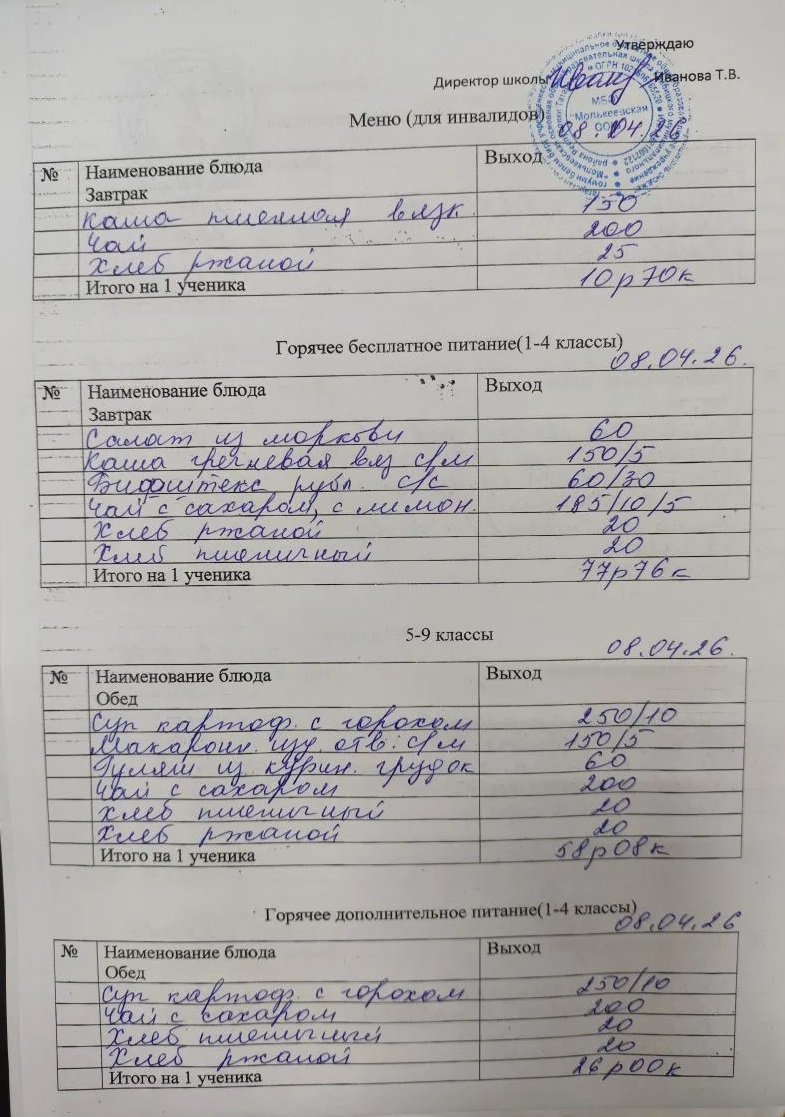 Утверждаю
Директор школы Иванова Т.В.
МБОУ
"Молькеевская
ООШ"
Меню (для инвалидов) 08.04.26
№ Наименование блюда Выход
Завтрак
каша пшенная вязк. 150
Чай 200
Хлеб ржаной 25
Итого на 1 ученика 10р70к
Горячее бесплатное питание(1-4 классы) 08.04.26.
№ Наименование блюда Выход
Завтрак
Салат из моркови 60
Каша гречневая вяз с/м 150/5
Бифштекс рубл. с/с 60/30
Чай с сахаром, с лимон. 185/10/5
Хлеб ржаной 20
Хлеб пшеничный 20
Итого на 1 ученика 77р76к
5-9 классы 08.04.26.
№ Наименование блюда Выход
Обед
Суп картоф. с горохом 250/10
Макарон. изд. отв. с/м 150/5
Гуляш из курин. грудок 60
Чай с сахаром 200
Хлеб пшеничный 20
Хлеб ржаной 20
Итого на 1 ученика 58р08к
Горячее дополнительное питание(1-4 классы) 08.04.26
№ Наименование блюда Выход
Обед
Суп картоф. с горохом 250/10
Чай с сахаром 200
Хлеб пшеничный 20
Хлеб ржаной 20
Итого на 1 ученика 26р00к